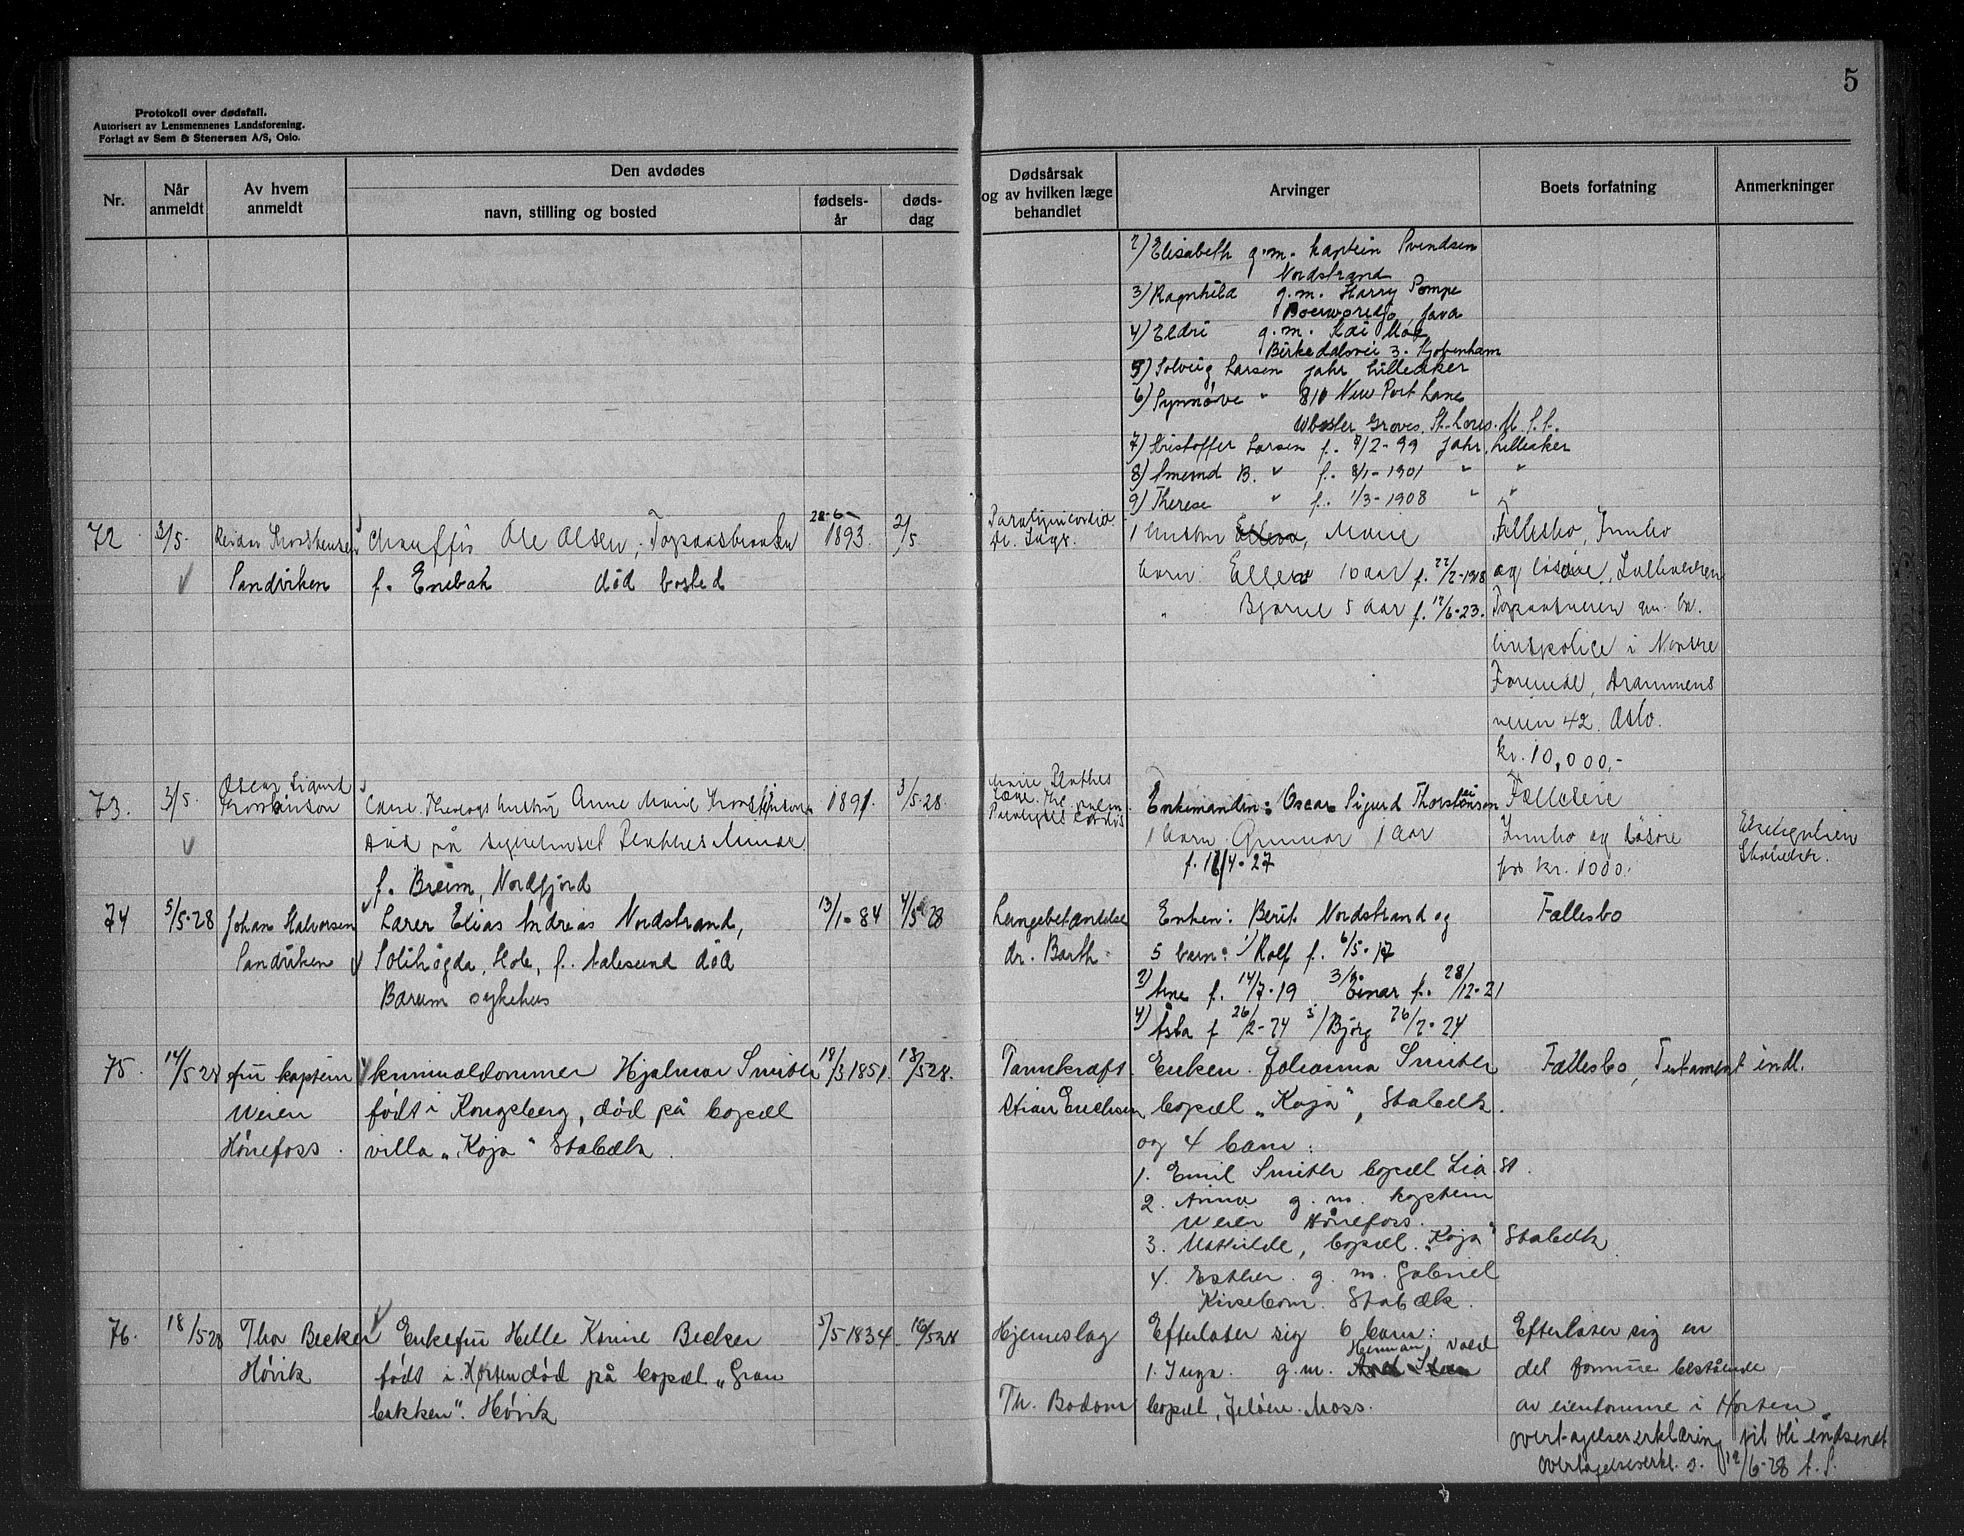 5
Protokoll over dødsfall.
Autorisert av Lensmennenes Landsforening.
Forlagt av Sem & Stenersen A/S, Oslo.
Nr.
Når anmeldt
Av hvem anmeldt
Den avdødes
navn, stilling og bosted
fødsels-
år
døds-
dag
Dødsårsak
og av hvilken læge
behandlet
Arvinger
Boets forfatning
Anmerkninger
2) Elisabeth g.m. kaptein Svendsen
Nordstrand
3) Ragnhild g.m. Harry Pompe
Poerworedjo, Java
4) Eldri g.m. Kai Moe
Birkedalsvei 3. Kjobenham
5) Solveig Larsen Jahr Lilleaker
6) Synnøve " 810 New Port Lane
Wbsler Groves. St. Lores. U.S.S.
7) Kristoffer Larsen f. 9/2-99 Jahr, Lilleaker
8) Smeund B. " f. 8/1-1901 " "
9) Therese " f. 1/3-1908 " "
72 3/5. Reidar Thorstensen
Sandviken
Chauffør Ole Olsen,
f. Enebak død bosted
28-6-
1893. 2/5
1 hustru Marie
barn: Ellen 10 aar f. 22/2-1918
" Bjarne 5 aar f. 17/6-23.
Fellesbo, Innbo
og løsøre,
livspolice i Norske
Forende, Drammens
veien 42. Oslo.
kr. 10,000,-
73. 3/5. Oscar Sigurd
Thorstenson
Anne Marie Thorstensen
død på sykehuset
f. Breim, Nordfjord
1891. 3/5-28.
Enkemanden: Oscar Sigurd Thorstensen
1 barn Gunnar 1 aar
f. 16/4-27
Felleseie
Innbo og løsøre
for kr. 1000.
74 5/5-28 Johan Halvorsen
Sandviken
Lærer Elias Andreas Nordstrand,
Solihøgda, Hole, f. Aalesund død
Bærum sykehus
13/1-84 4/5-28
Lungebetændelse
dr. Barth.
Enken: Berit Nordstrand og
5 barn: 1) Rolf f. 6/5-17
2) Arne f. 14/7-19 3) Einar f. 28/12-21
4) Åsta f 26/2-24 5) Bjørg 26/2-24
Fællesbo
75. 14/5 28 fru kaptein
Meier
Hønefoss.
kriminaldommer Hjalmar Smith
født i Kongsberg, død på bopæl
villa „Koja" Stabæk.
19/3 1851. 13/5 28.
Tannkræft
Stian Erichsen
Enken. Johanna Smith
bopæl „Koja", Stabæk.
og 4 barn:
1. Emil Smith bopæl Lia. St.
2. Anna g. m. kaptein
Meier Hønefoss.
3. Mathilde, bopæl. „Koja" Stabæk
4. Esther. g. m. Gabriel
Kirsebom. Stabæk.
Fællesbo, Testament indl.
76. 18/5 28 Thor Becker
Høvik
Enkefru Helle Konine Becker
født i Horten død på bopæl „Gran
bakken". Høvik
5/5 1834. 16/5 28
Hjerneslag
Th. Bodom
Efterlater sig 6 barn:
Herman Vold
1. Inga. g. m.
bopæl, Jeløen. Moss.
Efterlater sig en
del formue bestående
av eiendomme i Horten.
Overtagelseserklæring vil bli indsendt
Overtagelseserkl. s. 19/6-28 L. S.